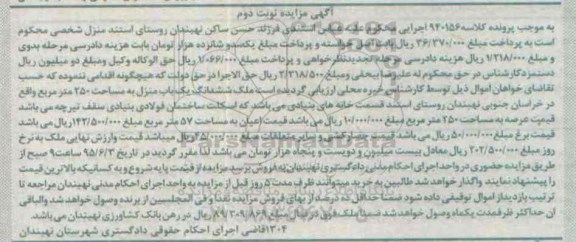 آگهی مزایده نوبت دوم
به موجب پرونده کلاسه ۹۴۰۱۵۶ اجرایی محکوم علیه عباس اسفندی فرزند حسن ساکن نهبندان روستای استند منزل شخصی محکوم
است به پرداخت مبلغ ۳۶/۳۷۰/۰۰۰ ریال بابت اصل خواسته و پرداخت مبلغ یکصد و شانزده هزار تومان بابت هزینه دادرسی مرحله بدوی
و مبلغ ۱/۲۱۸/۰۰۰ ریال هزینه دادرسی مرحله تجدیدنظرخواهی و پرداخت مبلغ ۱/۰۶۶/۰۰۰ ریال حق الوکاله وکیل ومبلغ دو میلیون ریال
دستمزدکارشناس در حق محکوم له علیرضا بیخفی ومبلغ ۲/۳۱۸/۵۰۰ ریال حق الاجرا در حق دولت که هیچگونه اقدامی ننموده که حسب
تقاضای خواهان اموال ذیل توسط کارشناس خبره محلی ارزیابی گردیده است ملک ششدانگ یک باب منزل به مساحت ۲۵۰ متر مربع واقع
در خراسان جنوبی نهبندان روستای استند قسمت خانه های بنیادی می باشد که اسکلت ساختمان فولادی بنیادی سقف تیرچه می باشد
قیمت عرصه به مساحت ۲۵۰ متر مربع مبلغ ۱۰/۰۰۰/۰۰۰ ریال می باشد قیمت اعیان به مساحت ۵۷ متر مربع مبلغ ۱۴۲/۵۰۰/۰۰۰ ریال می باشد
قیمت برق مبلغ ۵۰/۰۰۰/۰۰۰ ریال می باشد قیمت حصارکشی و سایر متعلقات مبلغ ریال میباشد قیمت وارزش نهایی ملک به نرخ
روز مبلغ ۲۰۲/۵۰۰/۰۰۰ ریال معادل بیست میلیون و دویست و پنجاه هزار تومان می باشد لذا مقرر گردید در تاریخ ۹۵/۶/۳ ساعت ۹ صبح از
طریق مزایده حضوری در واحد اجرای احکام مدنی دادگستری نهبندان به فروش برسد مزایده از قیمت پایه شروع و به کسانیکه بالاترین قیمت
را پیشنهاد نمایند واگذار خواهد شد طالبین به خرید میتوانند ظرف مدت ۵ روز قبل از مزایده به واحد اجرای احکام مدنی نهبندان مراجعه تا
ترتیب بازدید از اموال توقیفی داده شود ضمنا حداقل ده درصد از بهای فروش مزایده نقدا و فی المجلسبین از برنده وصول خواهد شد والباقی
آن حداکثر ظرف مدت یکماه وصول خواهد شد ضمنا ملک فوق در قبال مبلغ ۸۹/۳۰۹/۸۶۹ ریال در رهن بانک کشاورزی نهبندان می باشد.
۱۳۰۴قاضی اجرای احکام حقوقی دادگستری شهرستان نهبندان
ParsNamadData